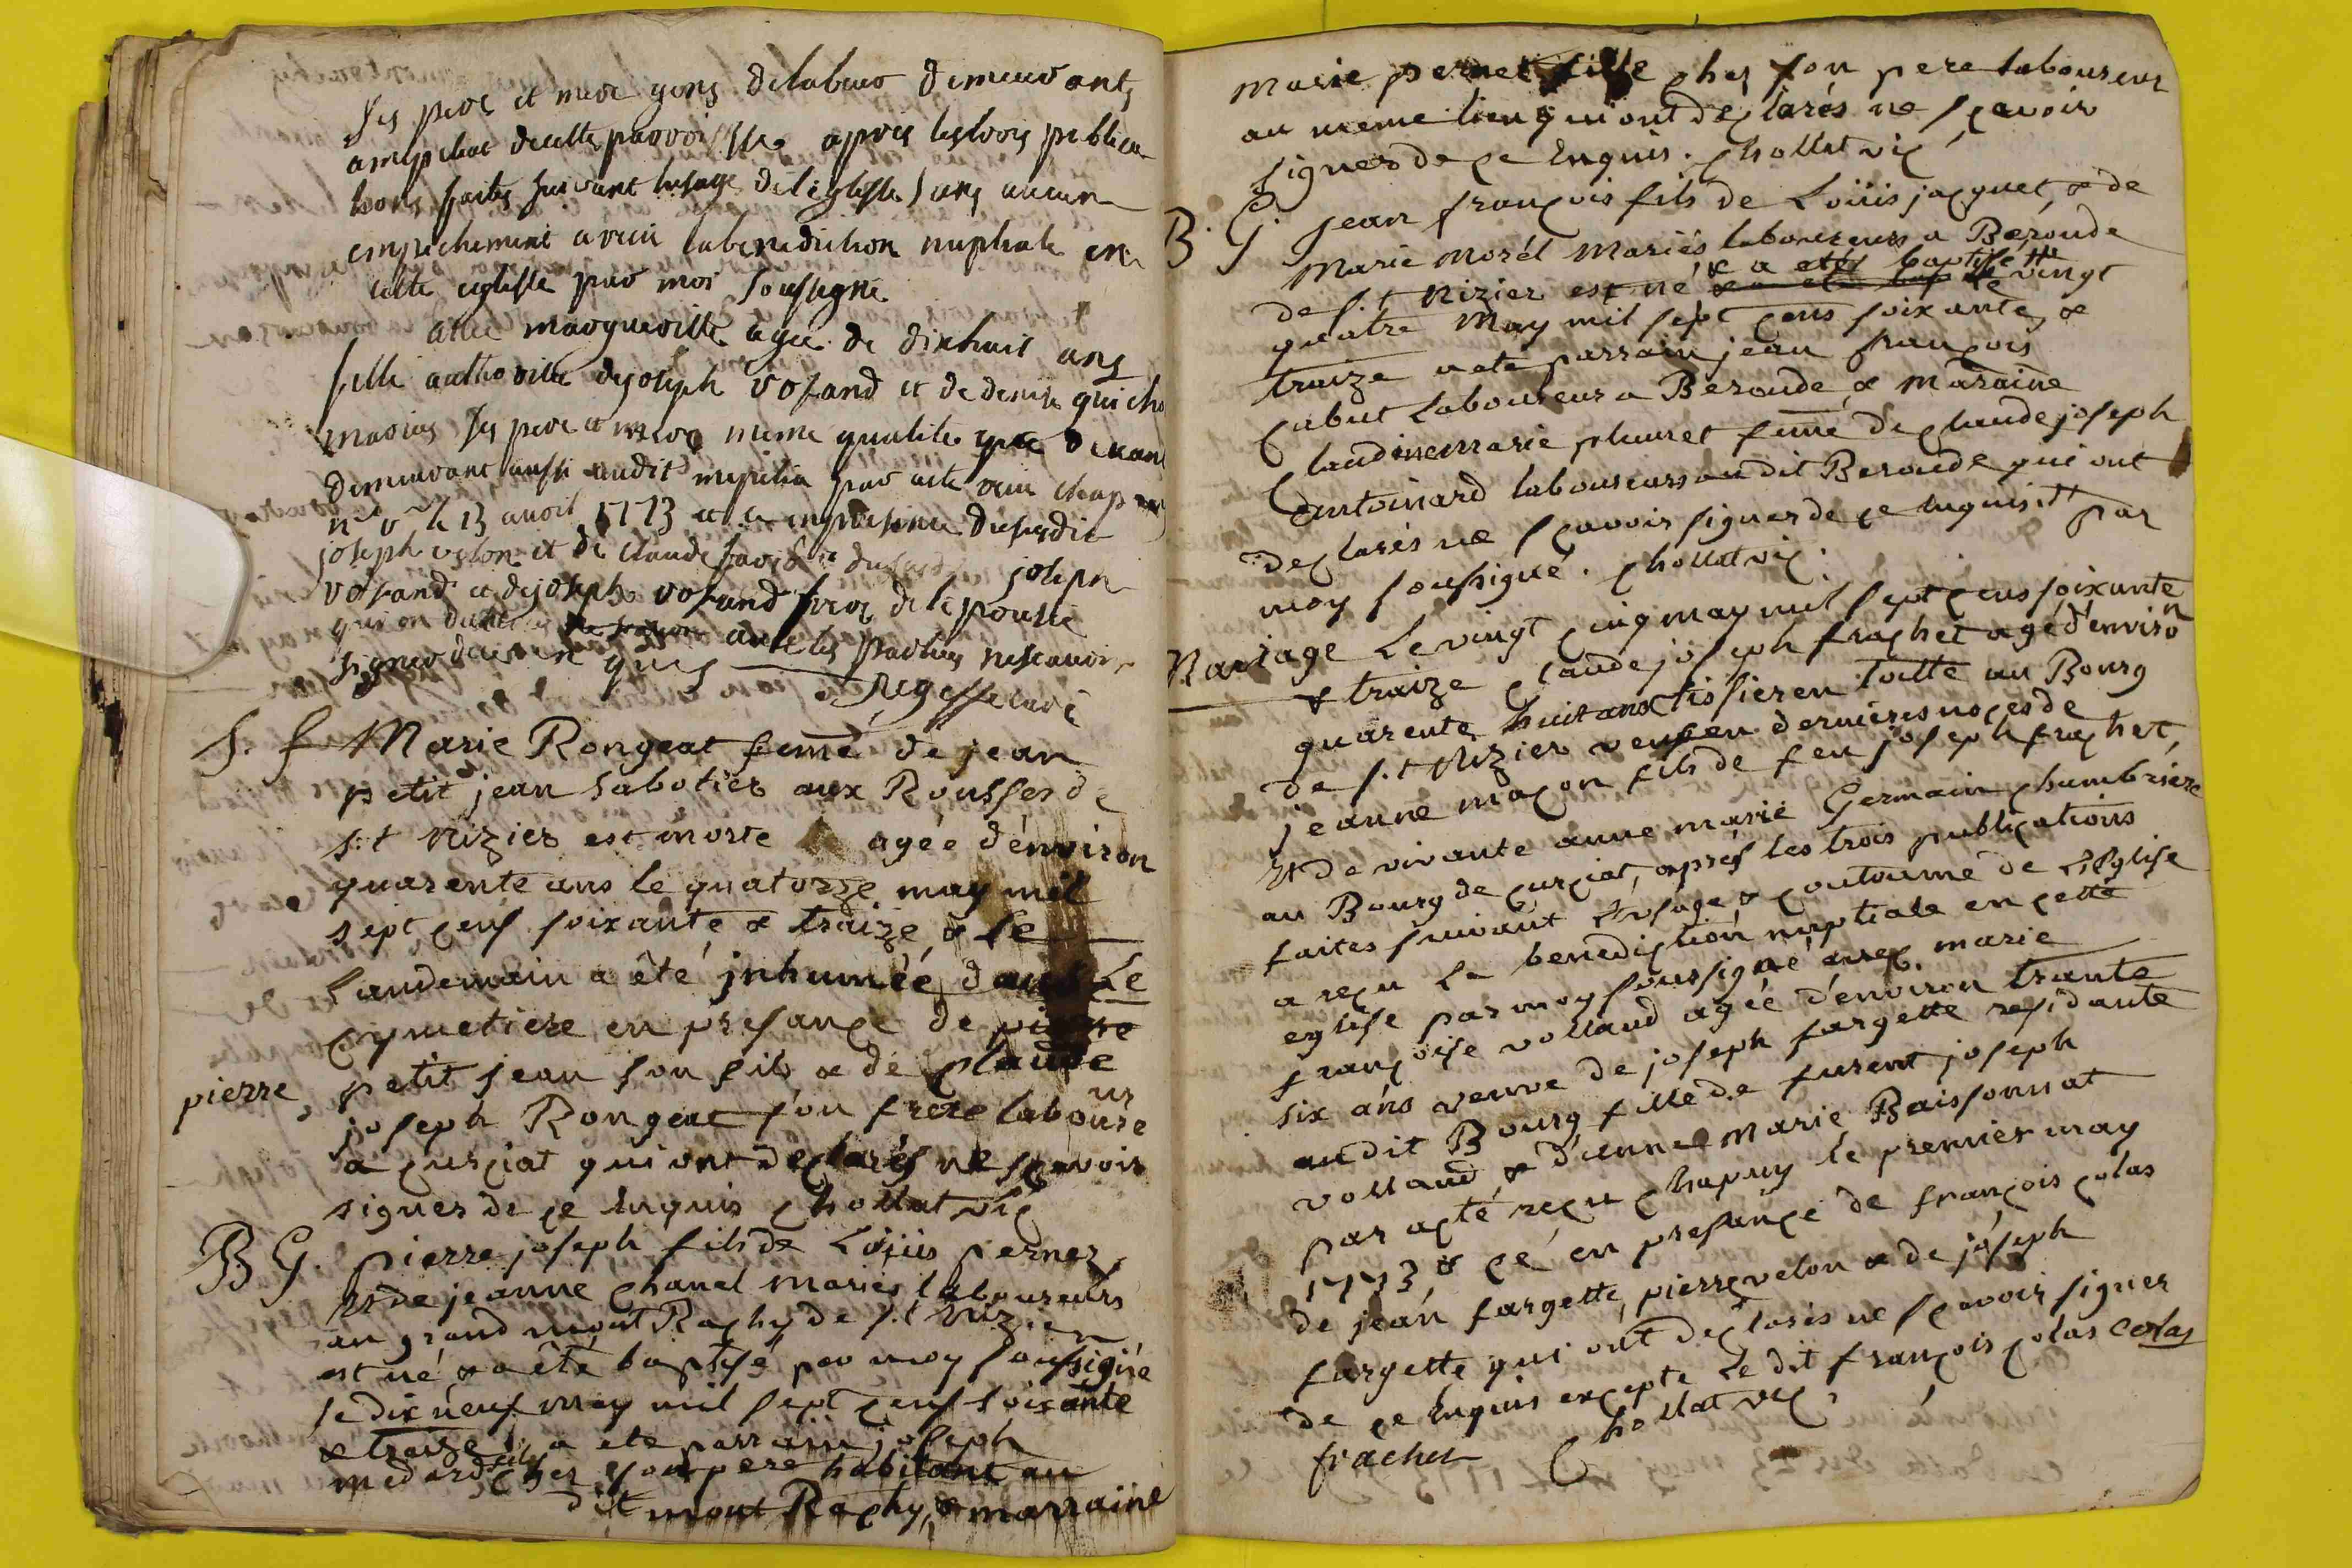 ses pere et mere gens delabeur demeurants
amepiliat decette parroisse apres lestrois publica
tions faites suivant lusage deleglisse sans aucun
empechement a recu labenediction nuptiale en
cette eglisse par moi soussigné
avec margueritte agée de dixhuit ans
fille authorisée dejoseph vofand et de denise guicho
mariés ses pere et mere meme qualite que devant
demeurant aussi audit mepilia par acte recu chapuy
nre rl le 13 avril 1773 et ce enpresence dususdit
joseph velon et de claude joseph
vofand et dejoseph vofand frere de lepousée
qui on avec les parties nescavoir
signer dece enquis
S. f. Marie Rongeat feme de jean
petit jean sabotier aux Rousses de
s.t Nizier est morte agée d'environ
quarente ans le quatorze may mil
sept cens soixante & traize & le
Landemain a été jnhumée dans Le
cymetiere en presance de pierre
pierre, petit jean son fils & de claude
joseph Rongeat son frere laboureur
a curciat qui ont declarés ne scavoir
signer de ce Enquis chollat vic
B G. pierre joseph fils de Loüis pernet
Et de jeanne chanel Mariés laboureurs
au grand mont Rachy de s.t Nizier
est né & a été baptisé par moy soussigné
le dix neuf may mil sept cens soixante
& traize a ete parrain joseph
medard fils chez son pere habitant au
dit mont Rachy, & marraine
Marie pernet fille chez son pere laboureur
au meme lieu qui ont declarés ne scavoir
signer de ce Enquis. chollat vic
B. G. Jean françois fils de Loüis jacquet, & de
Marie Morél Mariés laboureurs a Béroude
de s.t Nizier est né & a eté baptisé le vingt
quatre May mil sept cens soixante &
traize a ete parrain jean françois
cabut Laboureur a Beroude & Maraine
claudinemarie plumet feme de claude joseph
antoinard laboureurs audit Beroude qui ont
declarés ne scavoir signer de ce Enquis. par
moy soussigné. chollat vic.
Mariage Le vingt cinq may mil sept cens soixante
& traize claude joseph frachet agé d'environ
quarente huit ans tissier en toille au Bourg
de s.t Nizier veuf en dernieres noces de
jeanne maçon fils de feu joseph frachet,
Et de vivante anne marie Germain chambriere
au Bourg de curciat, aprés les trois publications
faites suivant L'usage & coutume de L'Eglise
a reçu la benediction nuptiale en cette
eglise par moy soussigné avec marie
françoise volland agée d'environ trante
six ans veuve de joseph fargette residante
audit Bourg fille de furent joseph
volland & d'ienne Marie Baissonnat
par acte reçu chapuy le premier may
1773 & ce en presance de françois colas
de jean fargette, pierre velon & de joseph
fargette qui ont declarés ne scavoir signer
de ce Enquis excepte Le dit françois colas colas
frachet chollat vic